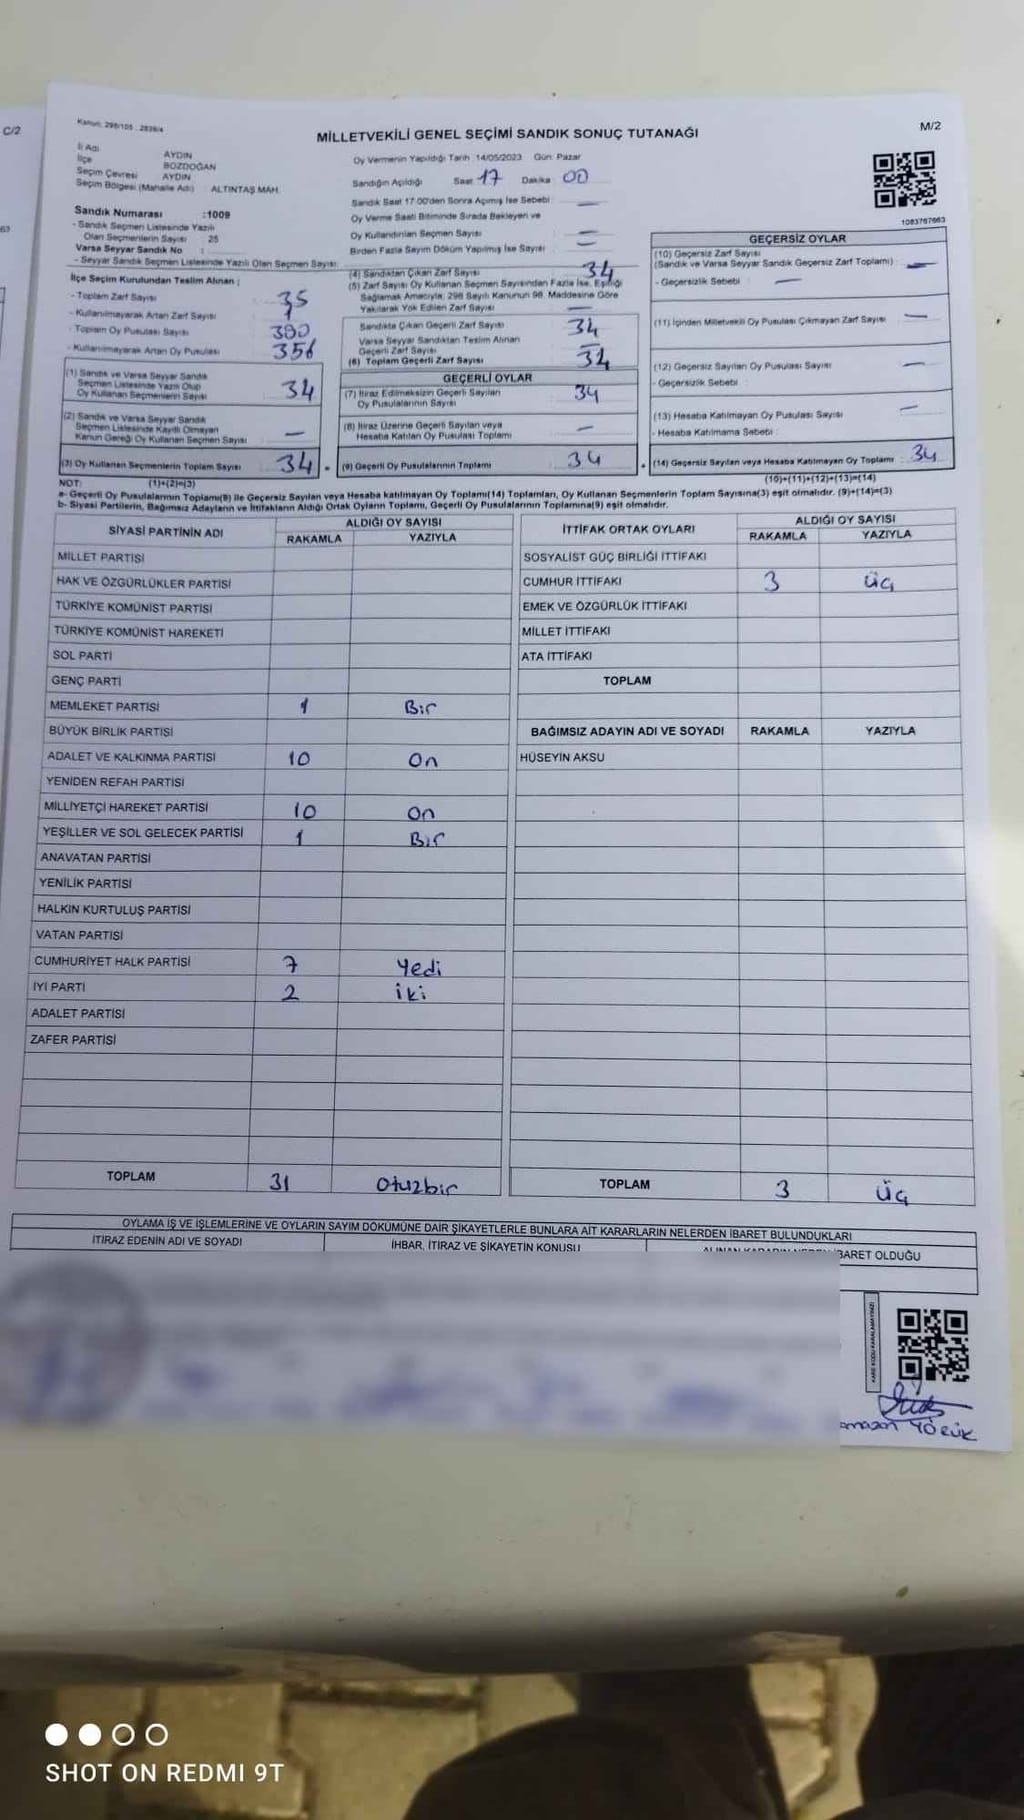 C/2
Kanun: 298/105 : 2839/4
M/2
MİLLETVEKİLİ GENEL SEÇİMİ SANDIK SONUÇ TUTANAĞI
İl Adı AYDIN
İlçe BOZDOĞAN
Seçim Çevresi AYDIN
Seçim Bölgesi (Mahalle Adı) : ALTINTAŞ MAH.
Oy Vermenin Yapıldığı Tarih 14/05/2023 Gün: Pazar
Sandığın Açıldığı Saat 17 Dakika 00
Sandık Saat 17:00'den Sonra Açımış İse Sebebi —
Oy Verme Saati Bitiminde Sırada Bekleyen ve
Oy Kullandırılan Seçmen Sayısı —
Birden Fazla Sayım Döküm Yapılmış İse Sayısı —
1083767663
Sandık Numarası :1009
- Sandık Seçmen Listesinde Yazılı
Olan Seçmenlerin Sayısı 25
Varsa Seyyar Sandık No :
- Seyyar Sandık Seçmen Listesinde Yazılı Olan Seçmen Sayısı:
İlçe Seçim Kurulundan Teslim Alınan ;
- Toplam Zarf Sayısı 35
- Kullanılmayarak Artan Zarf Sayısı 1
- Toplam Oy Pusulası Sayısı 390
- Kullanılmayarak Artan Oy Pusulası 356
(1) Sandık ve Varsa Seyyar Sandık
Seçmen Listesinde Yazılı Olup
Oy Kullanan Seçmenlerin Sayısı 34
(2) Sandık ve Varsa Seyyar Sandık
Seçmen Listesinde Kayıtlı Olmayan
Kanun Gereği Oy Kullanan Seçmen Sayısı —
(3) Oy Kullanan Seçmenlerin Toplam Sayısı 34
(4) Sandıktan Çıkan Zarf Sayısı 34
(5) Zarf Sayısı Oy Kullanan Seçmen Sayısından Fazla İse, Eşitliği
Sağlamak Amacıyla, 298 Sayılı Kanunun 98. Maddesine Göre
Yakılarak Yok Edilen Zarf Sayısı —
Sandıkta Çıkan Geçerli Zarf Sayısı 34
Varsa Seyyar Sandıktan Teslim Alınan
Geçerli Zarf Sayısı —
(6) Toplam Geçerli Zarf Sayısı 34
GEÇERLİ OYLAR
(7) İtiraz Edilmeksizin Geçerli Sayılan
Oy Pusulalarının Sayısı 34
(8) İtiraz Üzerine Geçerli Sayılan veya
Hesaba Katılan Oy Pusulası Toplamı —
(9) Geçerli Oy Pusulalarının Toplamı 34
GEÇERSİZ OYLAR
(10) Geçersiz Zarf Sayısı
(Sandık ve Varsa Seyyar Sandık Geçersiz Zarf Toplamı) : —
- Geçersizlik Sebebi : —
(11) İçinden Milletvekili Oy Pusulası Çıkmayan Zarf Sayısı —
(12) Geçersiz Sayılan Oy Pusulası Sayısı —
- Geçersizlik Sebebi :
(13) Hesaba Katılmayan Oy Pusulası Sayısı —
- Hesaba Katılmama Sebebi :
(14) Geçersiz Sayılan veya Hesaba Katılmayan Oy Toplamı : 34
NOT: (1)+(2)=(3)
(10)+(11)+(12)+(13)=(14)
a- Geçerli Oy Pusulalarının Toplamı(9) ile Geçersiz Sayılan veya Hesaba katılmayan Oy Toplamı(14) Toplamları, Oy Kullanan Seçmenlerin Toplam Sayısına(3) eşit olmalıdır. (9)+(14)=(3)
b- Siyasi Partilerin, Bağımsız Adayların ve İttifakların Aldığı Ortak Oyların Toplamı, Geçerli Oy Pusulalarının Toplamına(9) eşit olmalıdır.
SİYASİ PARTİNİN ADI ALDIĞI OY SAYISI
RAKAMLA YAZIYLA
MİLLET PARTİSİ
HAK VE ÖZGÜRLÜKLER PARTİSİ
TÜRKİYE KOMÜNİST PARTİSİ
TÜRKİYE KOMÜNİST HAREKETİ
SOL PARTİ
GENÇ PARTİ
MEMLEKET PARTİSİ 1 Bir
BÜYÜK BİRLİK PARTİSİ
ADALET VE KALKINMA PARTİSİ 10 On
YENİDEN REFAH PARTİSİ
MİLLİYETÇİ HAREKET PARTİSİ 10 On
YEŞİLLER VE SOL GELECEK PARTİSİ 1 Bir
ANAVATAN PARTİSİ
YENİLİK PARTİSİ
HALKIN KURTULUŞ PARTİSİ
VATAN PARTİSİ
CUMHURİYET HALK PARTİSİ 7 Yedi
İYİ PARTİ 2 İki
ADALET PARTİSİ
ZAFER PARTİSİ
TOPLAM 31 Otuzbir
İTTİFAK ORTAK OYLARI ALDIĞI OY SAYISI
RAKAMLA YAZIYLA
SOSYALİST GÜÇ BİRLİĞİ İTTİFAKI
CUMHUR İTTİFAKI 3 Üç
EMEK VE ÖZGÜRLÜK İTTİFAKI
MİLLET İTTİFAKI
ATA İTTİFAKI
TOPLAM
BAĞIMSIZ ADAYIN ADI VE SOYADI RAKAMLA YAZIYLA
HÜSEYİN AKSU
TOPLAM 3 Üç
OYLAMA İŞ VE İŞLEMLERİNE VE OYLARIN SAYIM DÖKÜMÜNE DAİR ŞİKAYETLERLE BUNLARA AİT KARARLARIN NELERDEN İBARET BULUNDUKLARI
İTİRAZ EDENİN ADI VE SOYADI İHBAR, İTİRAZ VE ŞİKAYETİN KONUSU ALINAN KARARIN NEDEN İBARET OLDUĞU
YÖRÜK
SHOT ON REDMI 9T